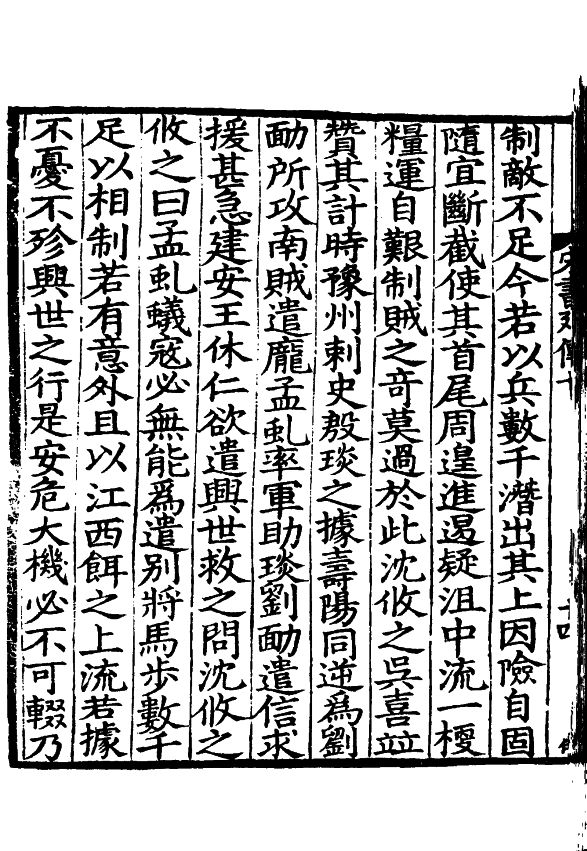 制敵不足今若以兵數千潛出其上因險自固
隨宜斷截使其首尾周遑進退疑沮中流一梗
糧運自艱制賊之奇莫過於此沈攸之吳喜竝
贊其計時豫州刺史殷琰之據壽陽同逆爲劉
勔所攻南賊遣龐孟虬率軍助琰劉勔遣信求
援甚急建安王休仁欲遣興世救之問沈攸之
攸之曰孟虬蟻寇必無能爲遣別將馬步數千
足以相制若有意外且以江西餌之上流若據
不憂不殄興世之行是安危大機必不可輟乃